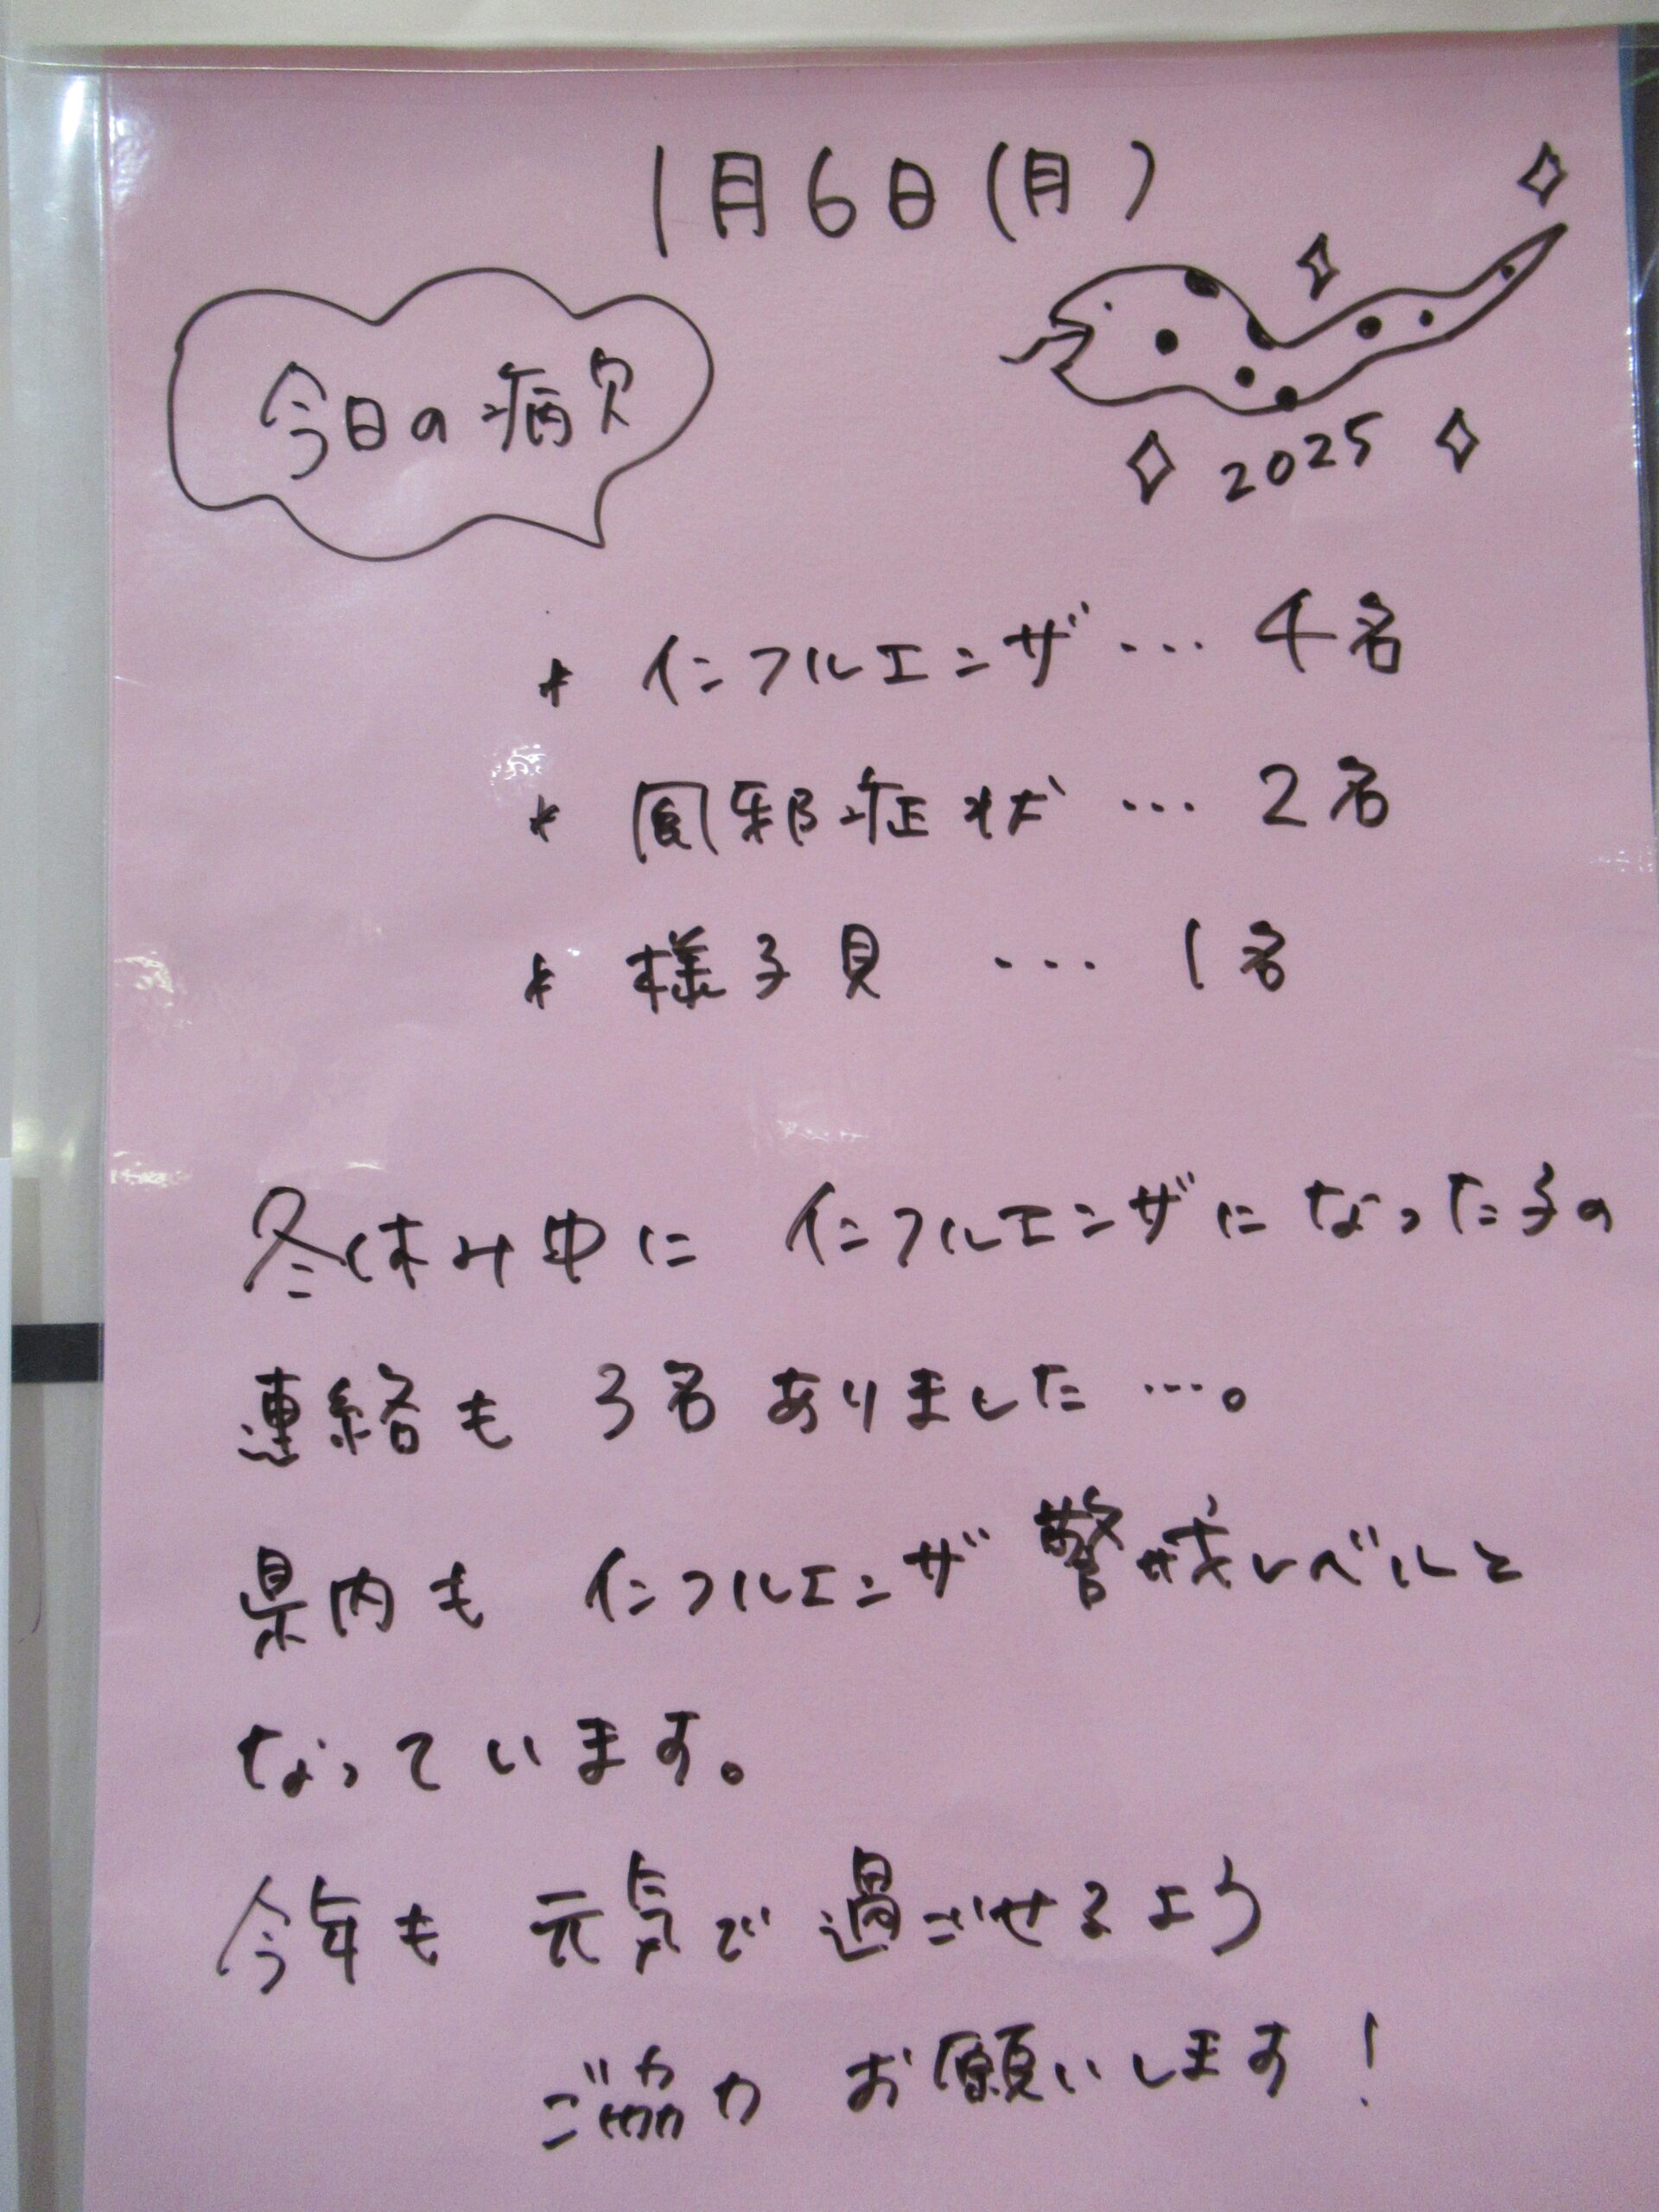 1月6日(月)
今日の病欠
2025
* インフルエンザ … 4名
* 風邪症状 … 2名
* 様子見 … 1名
冬休み中に インフルエンザになった子の
連絡も 3名 ありました…。
県内も インフルエンザ 警戒レベルと
なっています。
今年も 元気で 過ごせるよう
ご協力 お願いします!